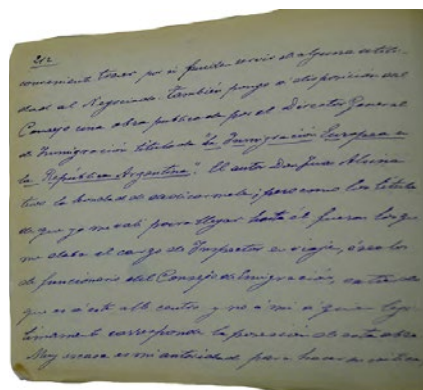 212
conveniente traer por si puede servir de alguna utili-
dad al Negociado. También pongo a disposición del
Consejo una obra publicada por el Director General
de Inmigración titulada "la Inmigración Europea en
la República Argentina". El autor Don Juan Alsina
tuvo la bondad de dedicarmela; pero como los títulos
de que yo me valí para llegar hasta él fueron los que
me daba el cargo de Inspector en viaje, ó sea los
de funcionario del Consejo de Emigración, entiendo
que es á este alto centro y no á mí á quien legi-
timamente corresponde la posesión de esta obra
Muy escasa es mi autoridad para hacer